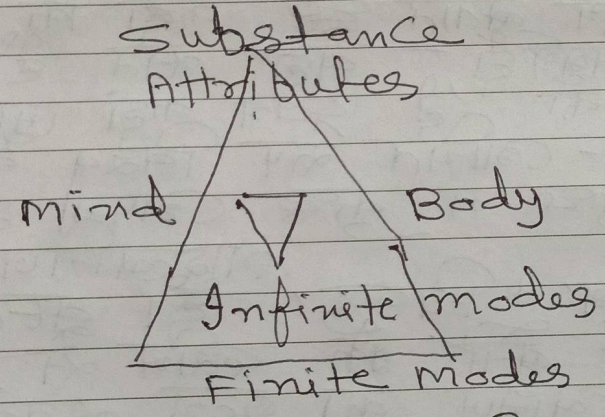 Substance
Attributes
Mind Body
Infinite modes
Finite modes